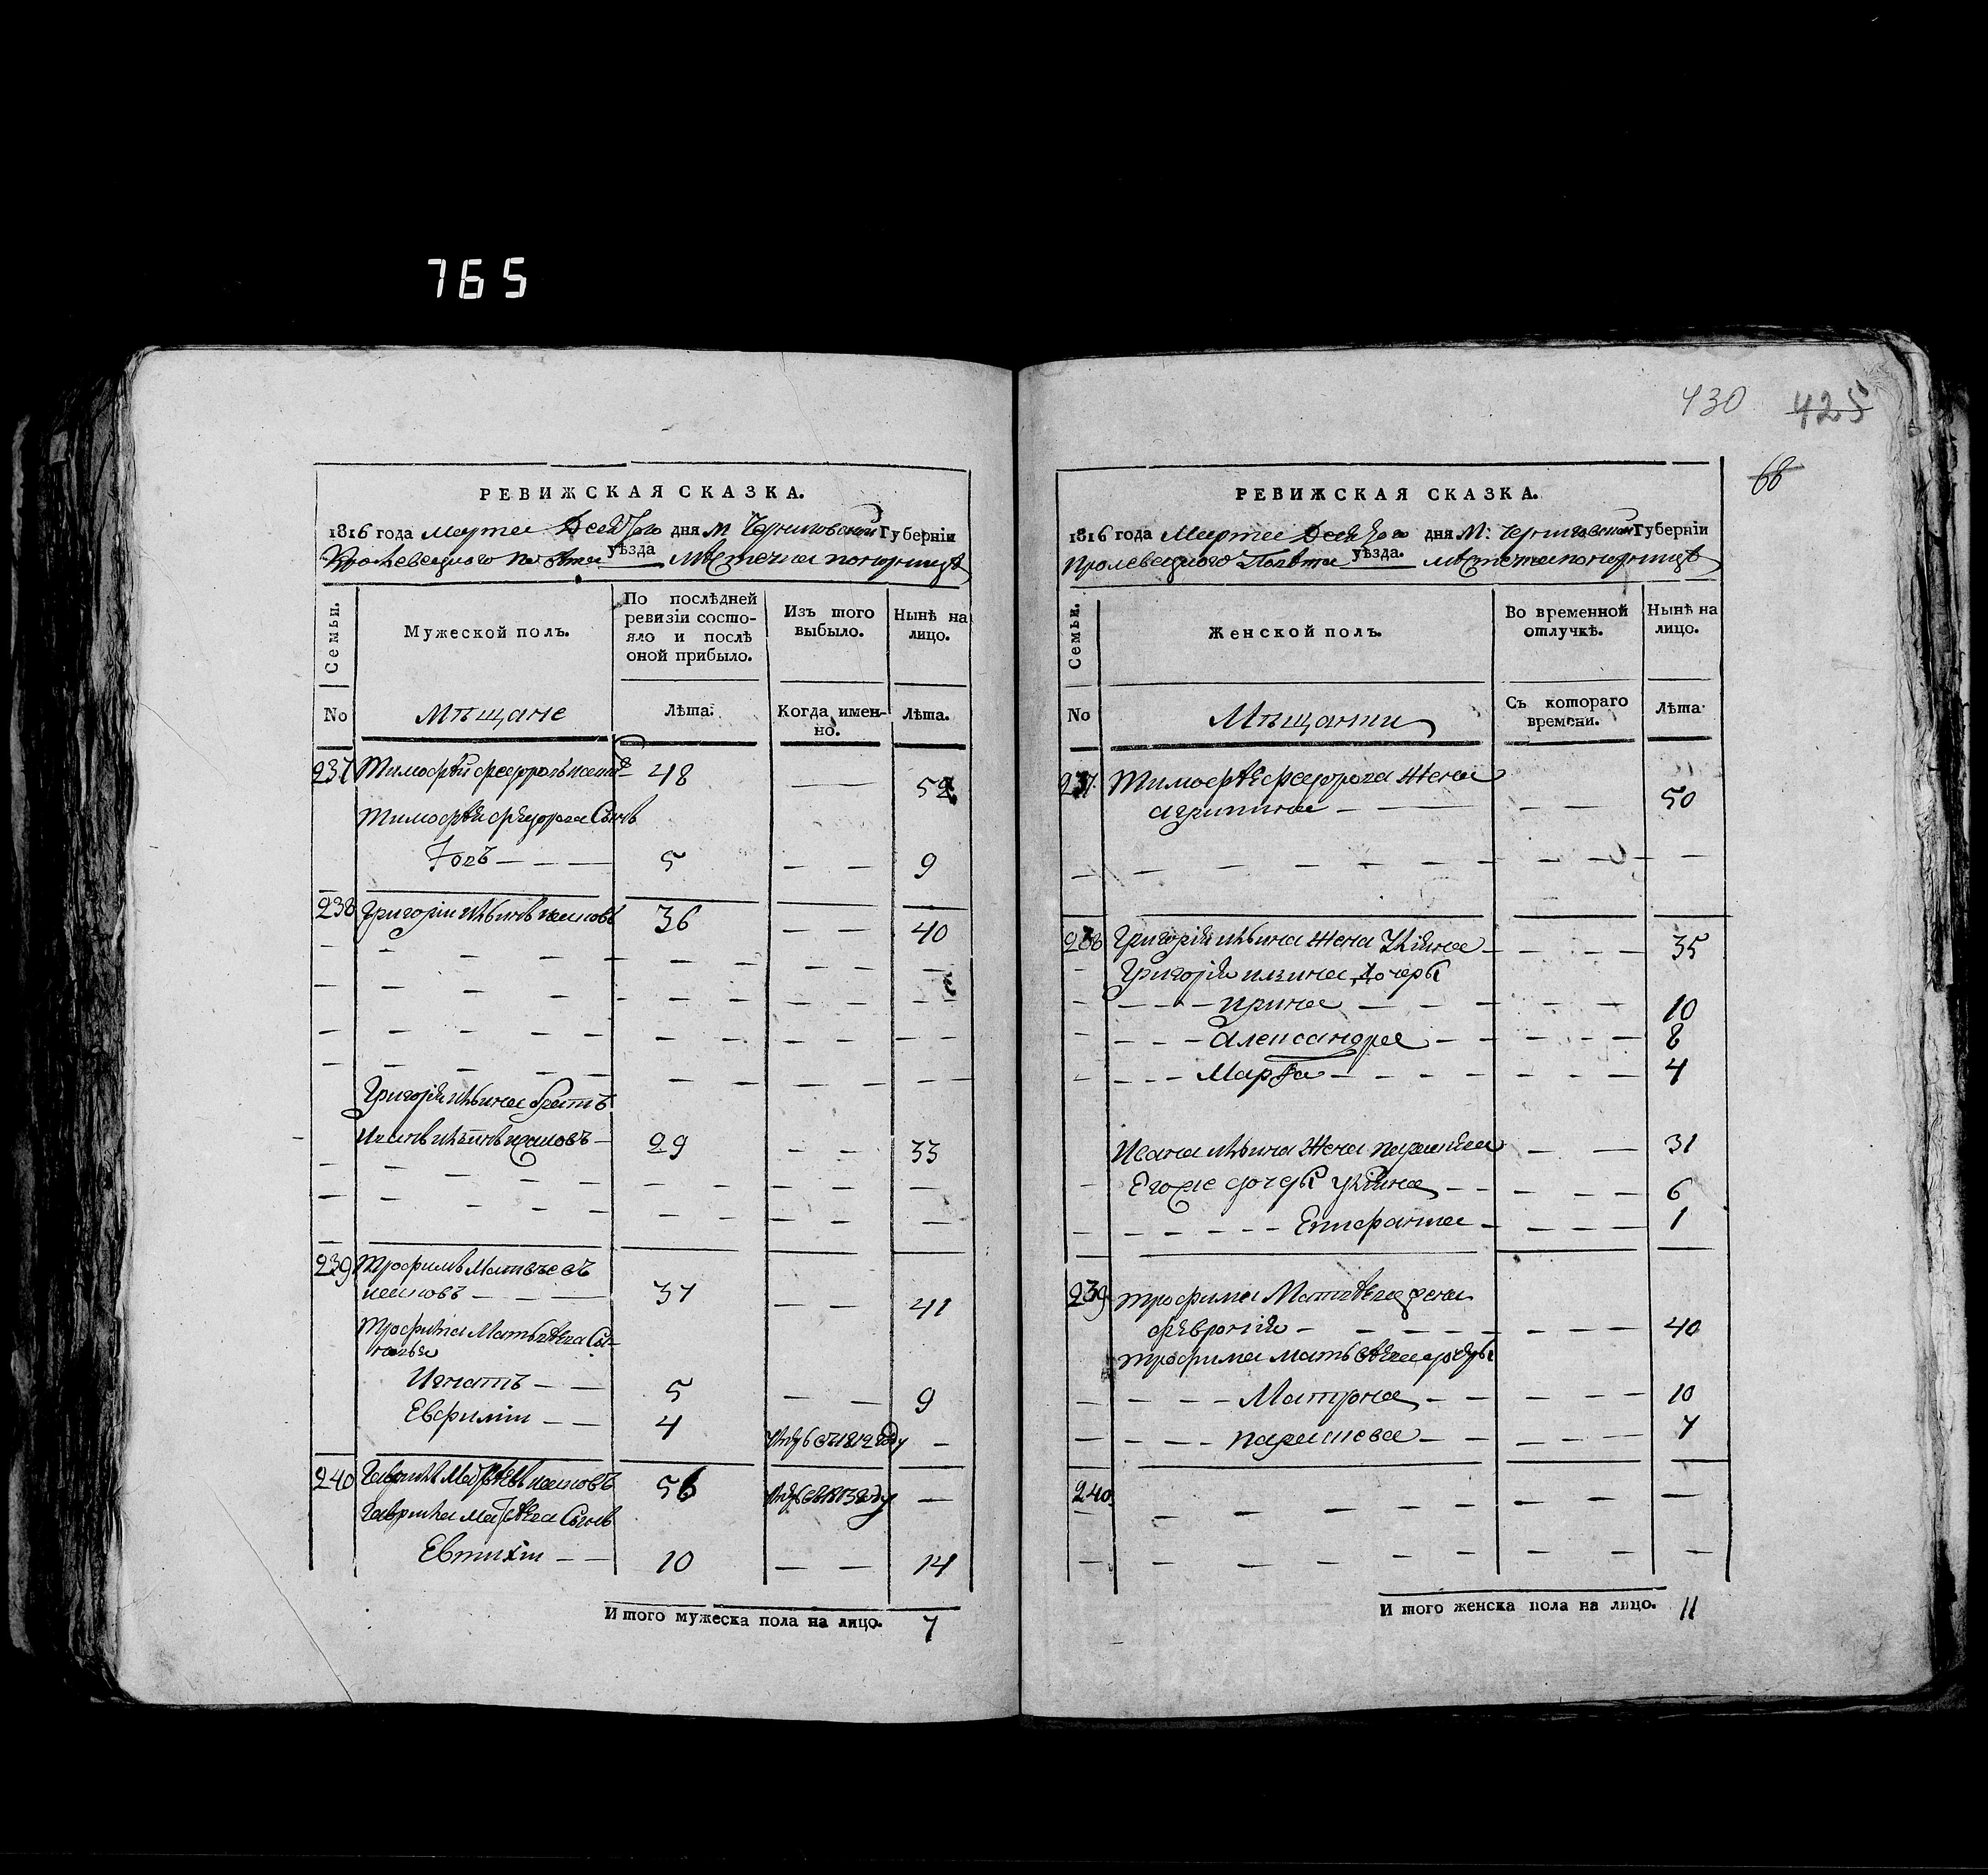 765
РЕВИЖСКАЯ СКАЗКА.
1816 года Марта дня М Черниговской Губерніи
Кролевецкого Повѣта уѣзда мѣстечка понорницѣ
Семьи.
Мужеской полъ.
По послѣдней ревизіи состояло и послѣ оной прибыло.
Изъ того выбыло.
Нынѣ на лицо.
No
Мѣщане
Лѣта.
Когда именно.
Лѣта.
237 Тимофѣй федоровъ 48 — — 52
Тимофѣя федорова Сынъ
5 — — 9
238 Григорій Ильинъ 36 — — 40
Григорія Ильина братъ
Иванъ Ильинъ 29 — — 33
239 Трофимъ Матвѣевъ
37 — — 41
Трофима Матвѣева Сы-
новья
Игнатъ — — 5 — — 9
Евфимій — — 4 1812 году —
240 Гаврилъ 56 1813 году —
Гаврила Сынъ
Евтихій — — 10 — — 14
Итого мужеска пола на лицо. 7
430 425
68
РЕВИЖСКАЯ СКАЗКА.
1816 года Марта дня М: Черниговской Губерніи
Кролевецкого Повѣта уѣзда. мѣстечка понорницѣ
Семьи.
Женской полъ.
Во временной отлучкѣ.
Нынѣ на лицо.
No
Мѣщанки
Съ котораго времени.
Лѣта
237. Тимофѣя федорова Жена
агрипина — — — 50
238 Григорія ильина Жена Улияна — — — 35
Григорія илина дочеры
— — — ирина — — — 10
— — — Александра — — — 8
— — — Марѳа — — — 4
Ивана ильина Жена параскева — — 31
Егоже дочеры Улияна — — — 6
— — — — — — 1
239 трофима Матвѣева жена
февронія — — — 40
трофима матвѣева дочеры
— — — Матрона — — — 10
— — — параскева — — — 7
240.
Итого женска пола на лицо. 11